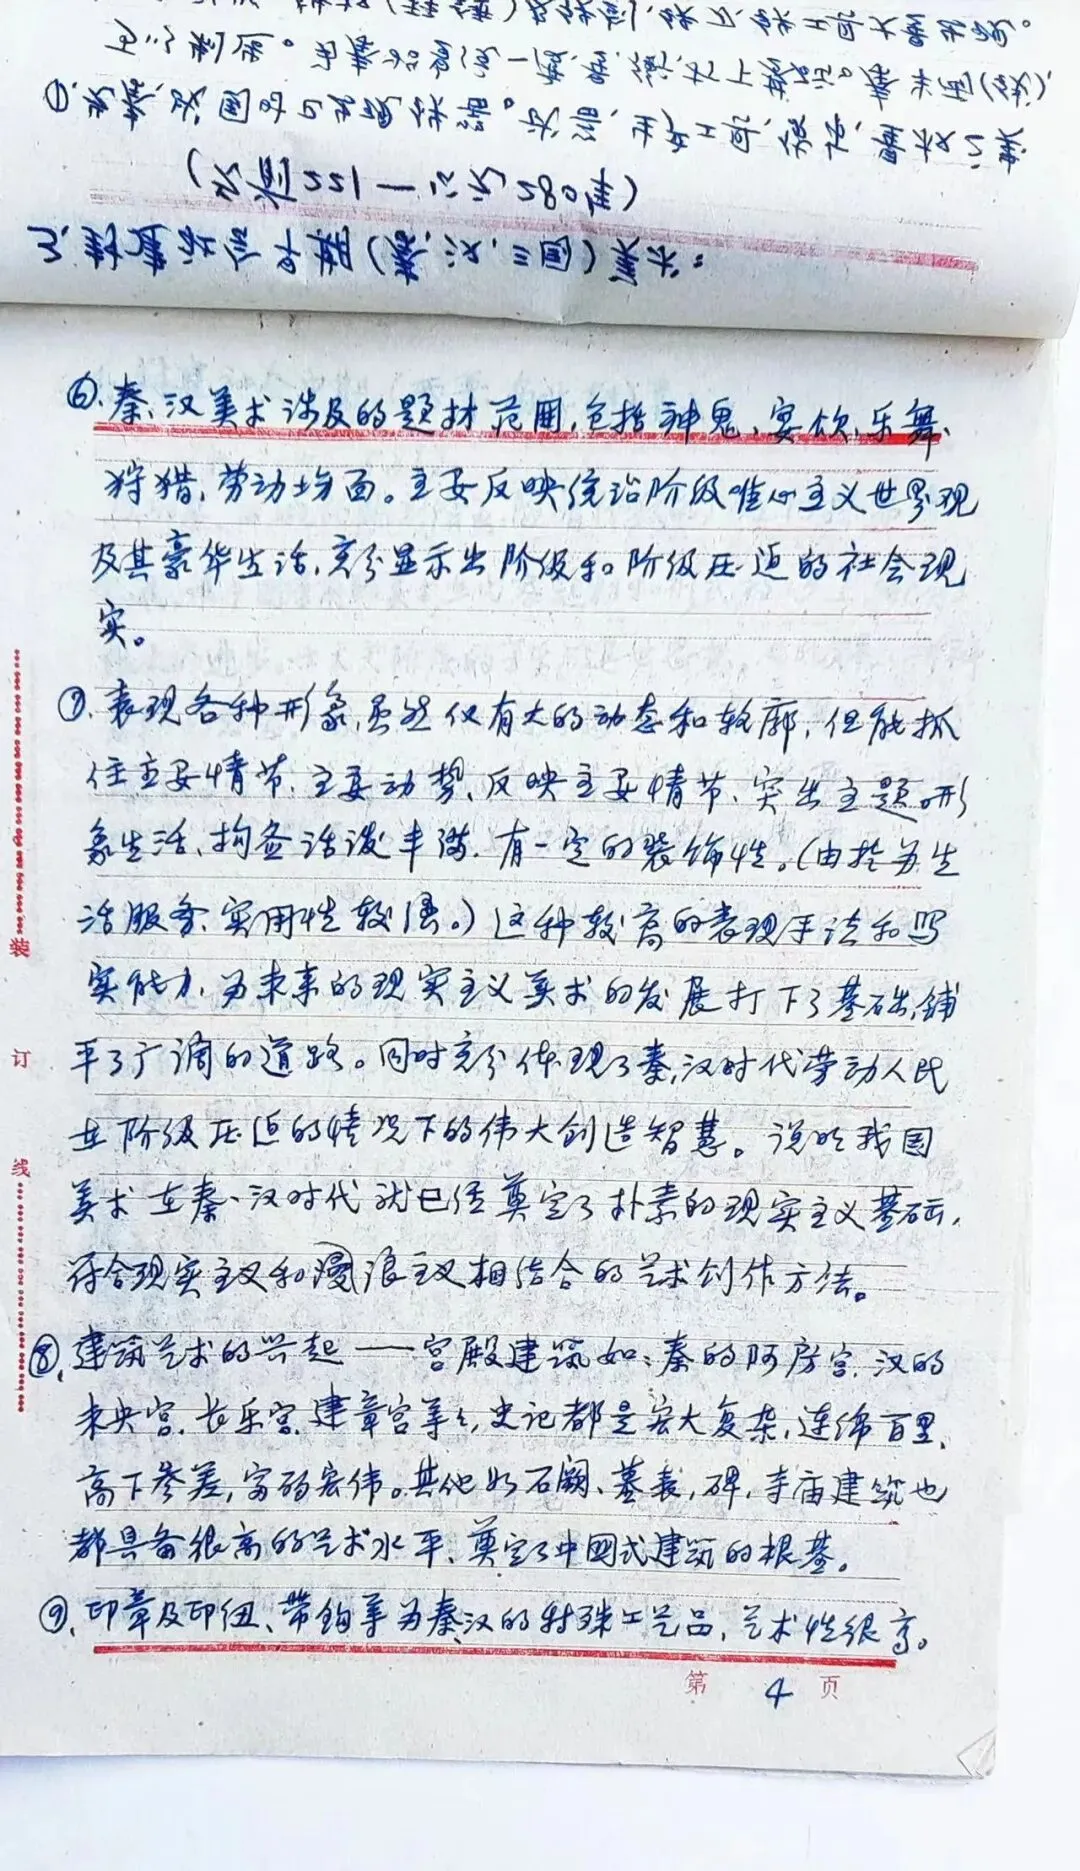 3、封建社会早期(秦、汉、三国)美术:
(公元前221—公元280年)
⑥、秦、汉美术涉及的题材范围,包括神鬼、宴饮、乐舞、
狩猎、劳动场面。主要反映统治阶级唯心主义世界观
及其豪华生活,充分显示出阶级和阶级压迫的社会现
实。
⑦、表现各种形象,虽然仅有大的动态和轮廓,但能抓
住主要情节、主要动势,反映主要情节、突出主题。形
象生活、构图活泼丰满,有一定的装饰性。(由于为生
活服务,实用性较强。)这种较高的表现手法和写
实能力,为未来的现实主义美术的发展打下了基础,铺
平了广阔的道路。同时充分体现了秦,汉时代劳动人民
在阶级压迫的情况下的伟大创造智慧。说明我国
美术在秦、汉时代就已经奠定了朴素的现实主义基础,
符合现实主义和浪漫主义相结合的艺术创作方法。
⑧、建筑艺术的兴起——宫殿建筑如:秦的阿房宫,汉的
未央宫、长乐宫、建章宫等等,史记都是宏大复杂,连绵百里,
高下参差,富丽宏伟。其他如石阙、墓表,碑,寺庙建筑也
都具备很高的艺术水平、奠定了中国式建筑的根基。
⑨、印章及印纽、带钩等为秦汉的特殊工艺品,艺术性很高。
第 4 页
装
订
线